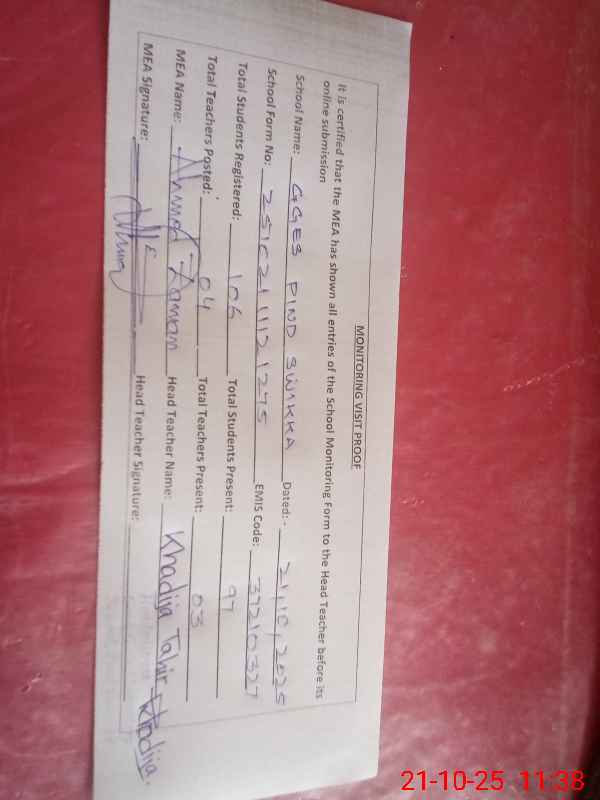 MONITORING VISIT PROOF
It is certified that the MEA has shown all entries of the School Monitoring Form to the Head Teacher before its
online submission
School Name: GGES PIND SWIKKA Dated:- 21,10,2025
School Form No: 25102111121275 EMIS Code: 37210327
Total Students Registered: 106 Total Students Present: 97
Total Teachers Posted: 04 Total Teachers Present: 03
MEA Name: Ahmed Zaman Head Teacher Name: Khadija Tahir
MEA Signature: Head Teacher Signature: Khadija.
21-10-25 11:38